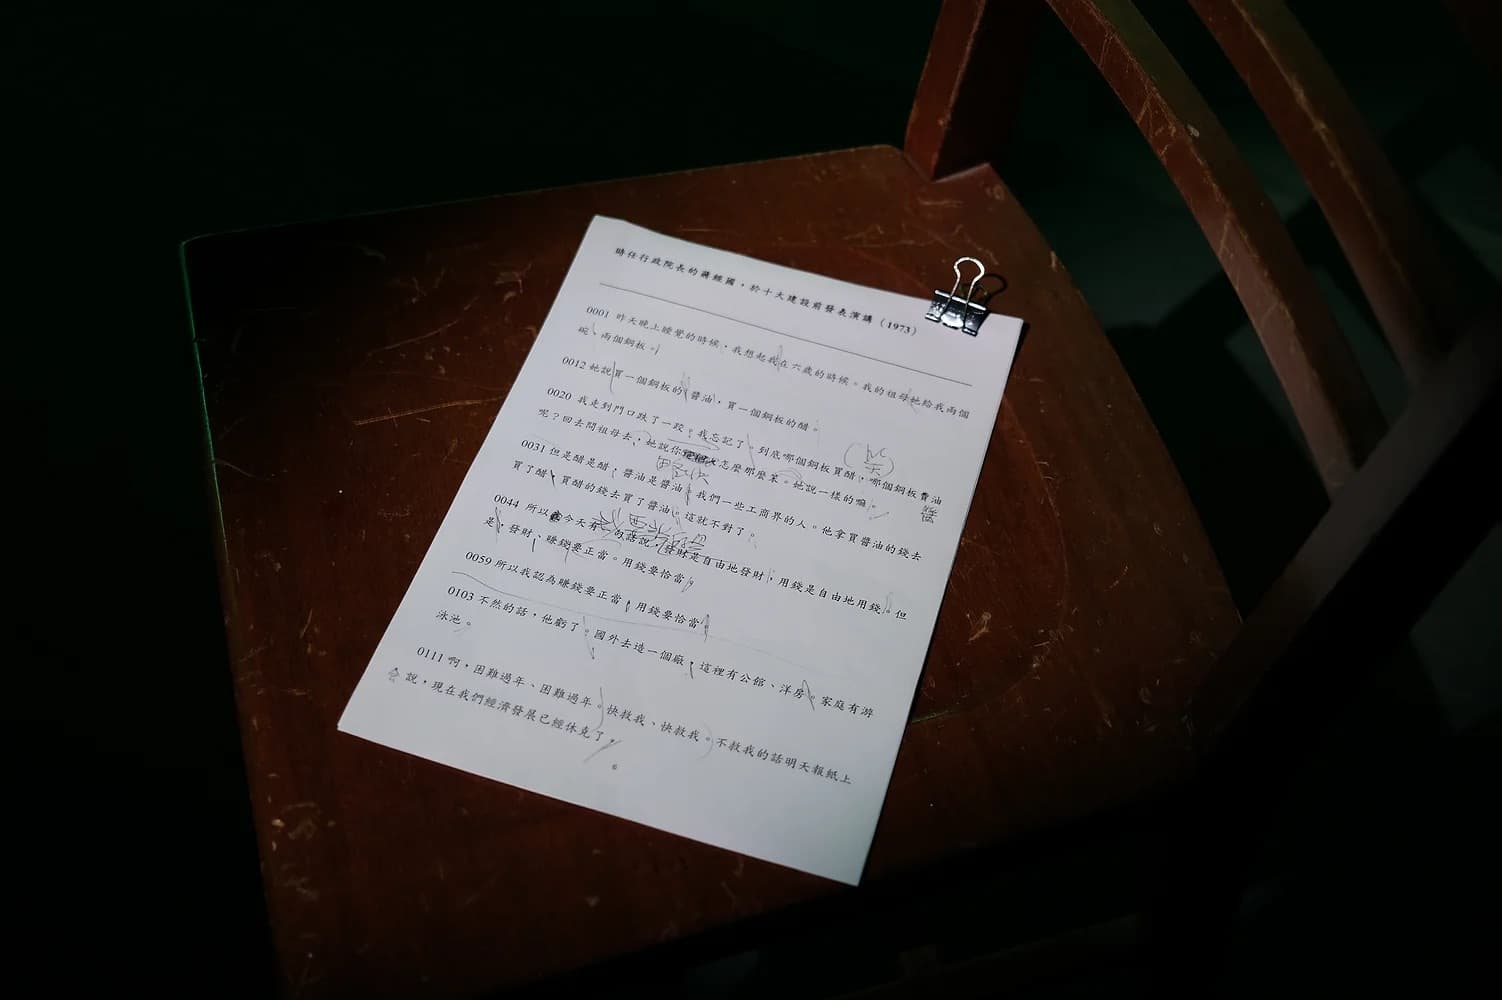 時任行政院長的蔣經國，於十大建設前發表演講（1973）
0001 昨天晚上睡覺的時候，我想起我在六歲的時候。我的祖母她給我兩個
碗、兩個銅板。
0012 她說買一個銅板的醬油，買一個銅板的醋。
0020 我走到門口跌了一跤？我忘記了，到底哪個銅板買醋，哪個銅板醬油
呢？回去問祖母去，她說你怎麼那麼笨。她說一樣的嘛。
0031 但是醋是醋，醬油是醬油，我們一些工商界的人。他拿買醬油的錢去
買了醋、買醋的錢去買了醬油。這就不對了。
0044 所以今天有的話說，發財是自由地發財，用錢是自由地用錢。但
是，發財、賺錢要正當。用錢要恰當
0059 所以我認為賺錢要正當，用錢要恰當。
0103 不然的話，他虧了。國外去造一個廠，這裡有公館、洋房。家庭有游
泳池。
0111 啊，困難過年、困難過年。快救我、快救我。不救我的話明天報紙上
會說，現在我們經濟發展已經休克了。